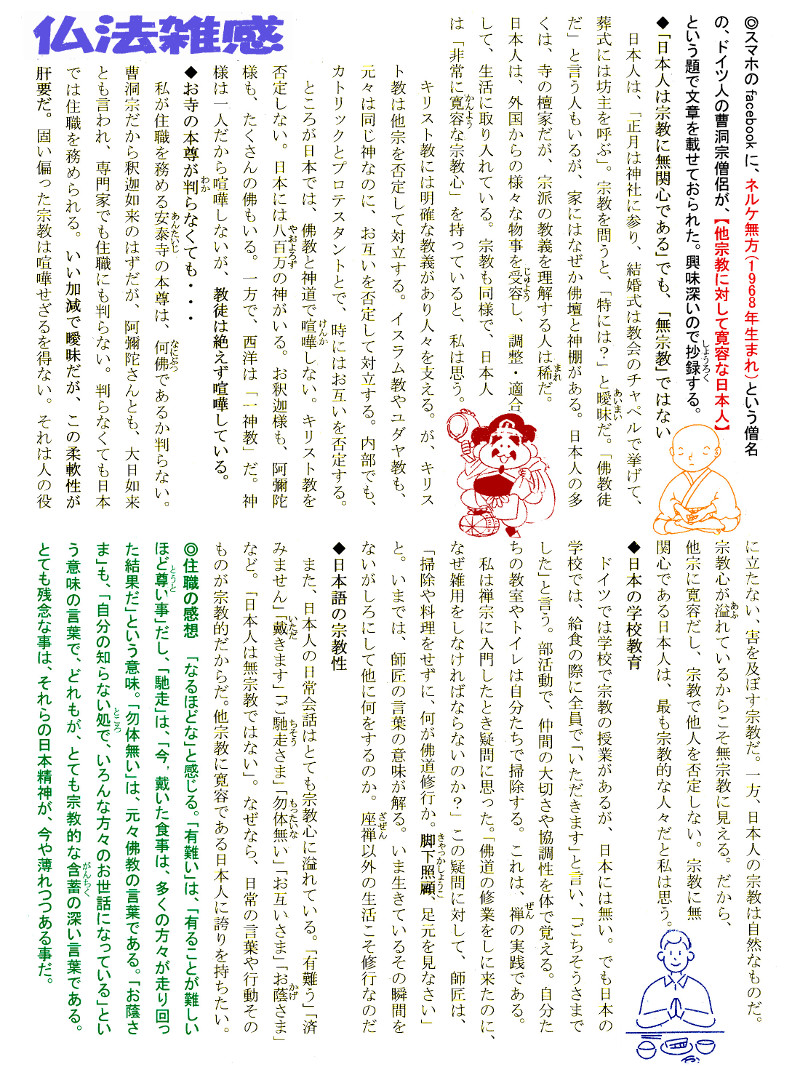 仏法雑感
◎スマホの facebook に、ネルケ無方(1968年生まれ)という僧名
の、ドイツ人の曹洞宗僧侶が、【他宗教に対して寛容な日本人】
という題で文章を載せておられた。興味深いので抄録する。
◆「日本人は宗教に無関心である」でも、「無宗教」ではない
日本人は、「正月は神社に参り、結婚式は教会のチャペルで挙げて、
葬式には坊主を呼ぶ」。宗教を問うと、「特には？」と曖昧だ。「佛教徒
だ」と言う人もいるが、家にはなぜか佛壇と神棚がある。日本人の多
くは、寺の檀家だが、宗派の教義を理解する人は稀だ。
日本人は、外国からの様々な物事を受容し、調整・適合
して、生活に取り入れている。宗教も同様で、日本人
は「非常に寛容な宗教心」を持っていると、私は思う。
キリスト教には明確な教義があり人々を支える。が、キリス
ト教は他宗を否定して対立する。イスラム教やユダヤ教も、
元々は同じ神なのに、お互いを否定して対立する。内部でも、
カトリックとプロテスタントとで、時にはお互いを否定する。
ところが日本では、佛教と神道で喧嘩しない。キリスト教を
否定しない。日本には八百万の神がいる。お釈迦様も、阿彌陀
様も、たくさんの佛もいる。一方で、西洋は「一神教」だ。神
様は一人だから喧嘩しないが、教徒は絶えず喧嘩している。
◆お寺の本尊が判らなくても・・・
私が住職を務める安泰寺の本尊は、何佛であるか判らない。
曹洞宗だから釈迦如来のはずだが、阿彌陀さんとも、大日如来
とも言われ、専門家でも住職にも判らない。判らなくても日本
では住職を務められる。いい加減で曖昧だが、この柔軟性が
肝要だ。固い偏った宗教は喧嘩せざるを得ない。それは人の役
に立たない、害を及ぼす宗教だ。一方、日本人の宗教は自然なものだ。
宗教心が溢れているからこそ無宗教に見える。だから、
他宗に寛容だし、宗教で他人を否定しない。宗教に無
関心である日本人は、最も宗教的な人々だと私は思う。
◆日本の学校教育
ドイツでは学校で宗教の授業があるが、日本には無い。でも日本の
学校では、給食の際に全員で「いただきます」と言い、「ごちそうさまで
した」と言う。部活動で、仲間の大切さや協調性を体で覚える。自分た
ちの教室やトイレは自分たちで掃除する。これは、禅の実践である。
私は禅宗に入門したとき疑問に思った。「佛道の修業をしに来たのに、
なぜ雑用をしなければならないのか？」この疑問に対して、師匠は、
「掃除や料理をせずに、何が佛道修行か。脚下照顧、足元を見なさい」
と。いまでは、師匠の言葉の意味が解る。いま生きているその瞬間を
ないがしろにして他に何をするのか。座禅以外の生活こそ修行なのだ
◆日本語の宗教性
また、日本人の日常会話はとても宗教心に溢れている。「有難う」「済
みません」「戴きます」「ご馳走さま」「勿体無い」「お互いさま」「お蔭さま」
など。「日本人は無宗教ではない」。なぜなら、日常の言葉や行動その
ものが宗教的だからだ。他宗教に寛容である日本人に誇りを持ちたい。
◎住職の感想　「なるほどな」と感じる。「有難い」は、「有ることが難しい
ほど尊い事」だし、「馳走」は、「今，戴いた食事は、多くの方々が走り回っ
た結果だ」という意味。「勿体無い」は、元々佛教の言葉である。「お蔭さ
ま」も、「自分の知らない処で、いろんな方々のお世話になっている」とい
う意味の言葉で、どれもが、とても宗教的な含蓄の深い言葉である。
とても残念な事は、それらの日本精神が、今や薄れつつある事だ。